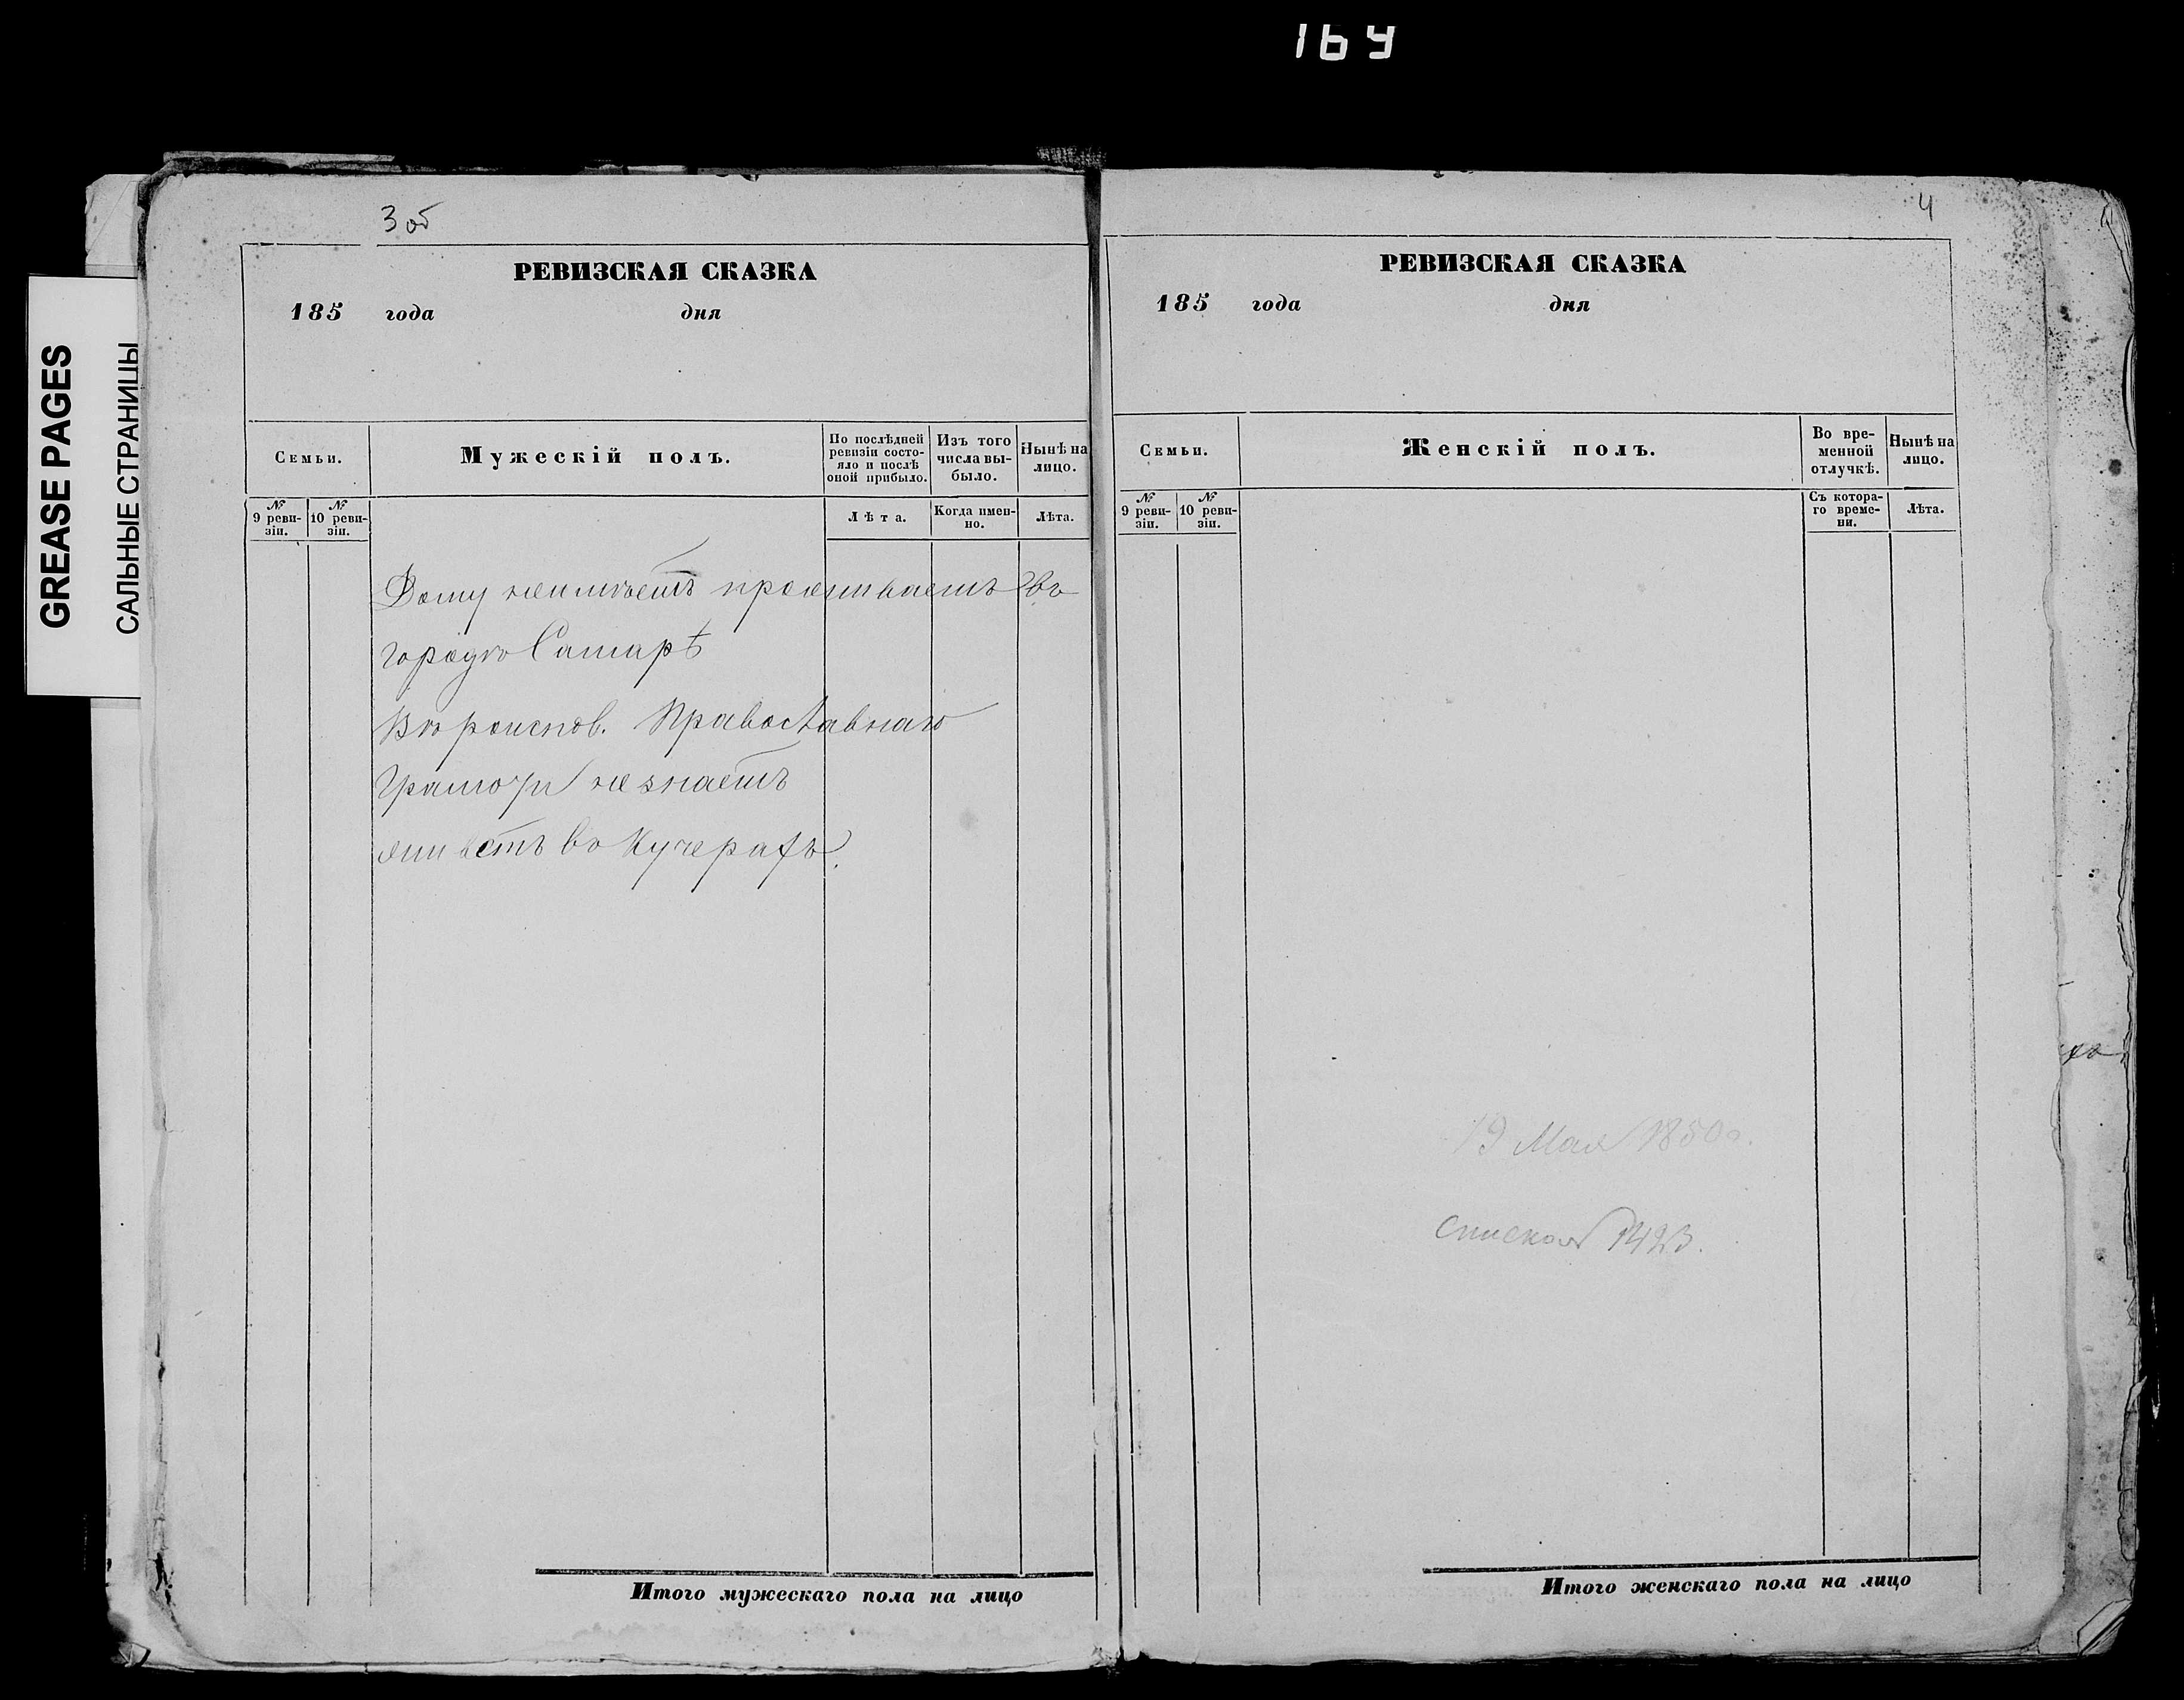 164
3 об
4
GREASE PAGES
САЛЬНЫЕ СТРАНИЦЫ
РЕВИЗСКАЯ СКАЗКА
185 года дня
Семьи.
Мужескій полъ.
По послѣдней ревизіи состо-
яло и послѣ
оной прибыло.
Изъ того
числа вы-
было.
Нынѣ на
лицо.
№
9 реви-
зіи.
№
10 реви-
зіи.
Лѣта.
Когда имен-
но.
Лѣта.
Дому неимѣетъ проживаетъ въ
городѣ Самарѣ
Вѣроиспов. Православнаго
Грамоты не знаетъ
живетъ въ Кучерахъ.
Итого мужескаго пола на лицо
РЕВИЗСКАЯ СКАЗКА
185 года дня
Семьи.
Женскій полъ.
Во вре-
менной
отлучкѣ.
Нынѣ на
лицо.
№
9 реви-
зіи.
№
10 реви-
зіи.
Съ котора-
го време-
ни.
Лѣта.
19 Мая 1850 г.
Итого женскаго пола на лицо